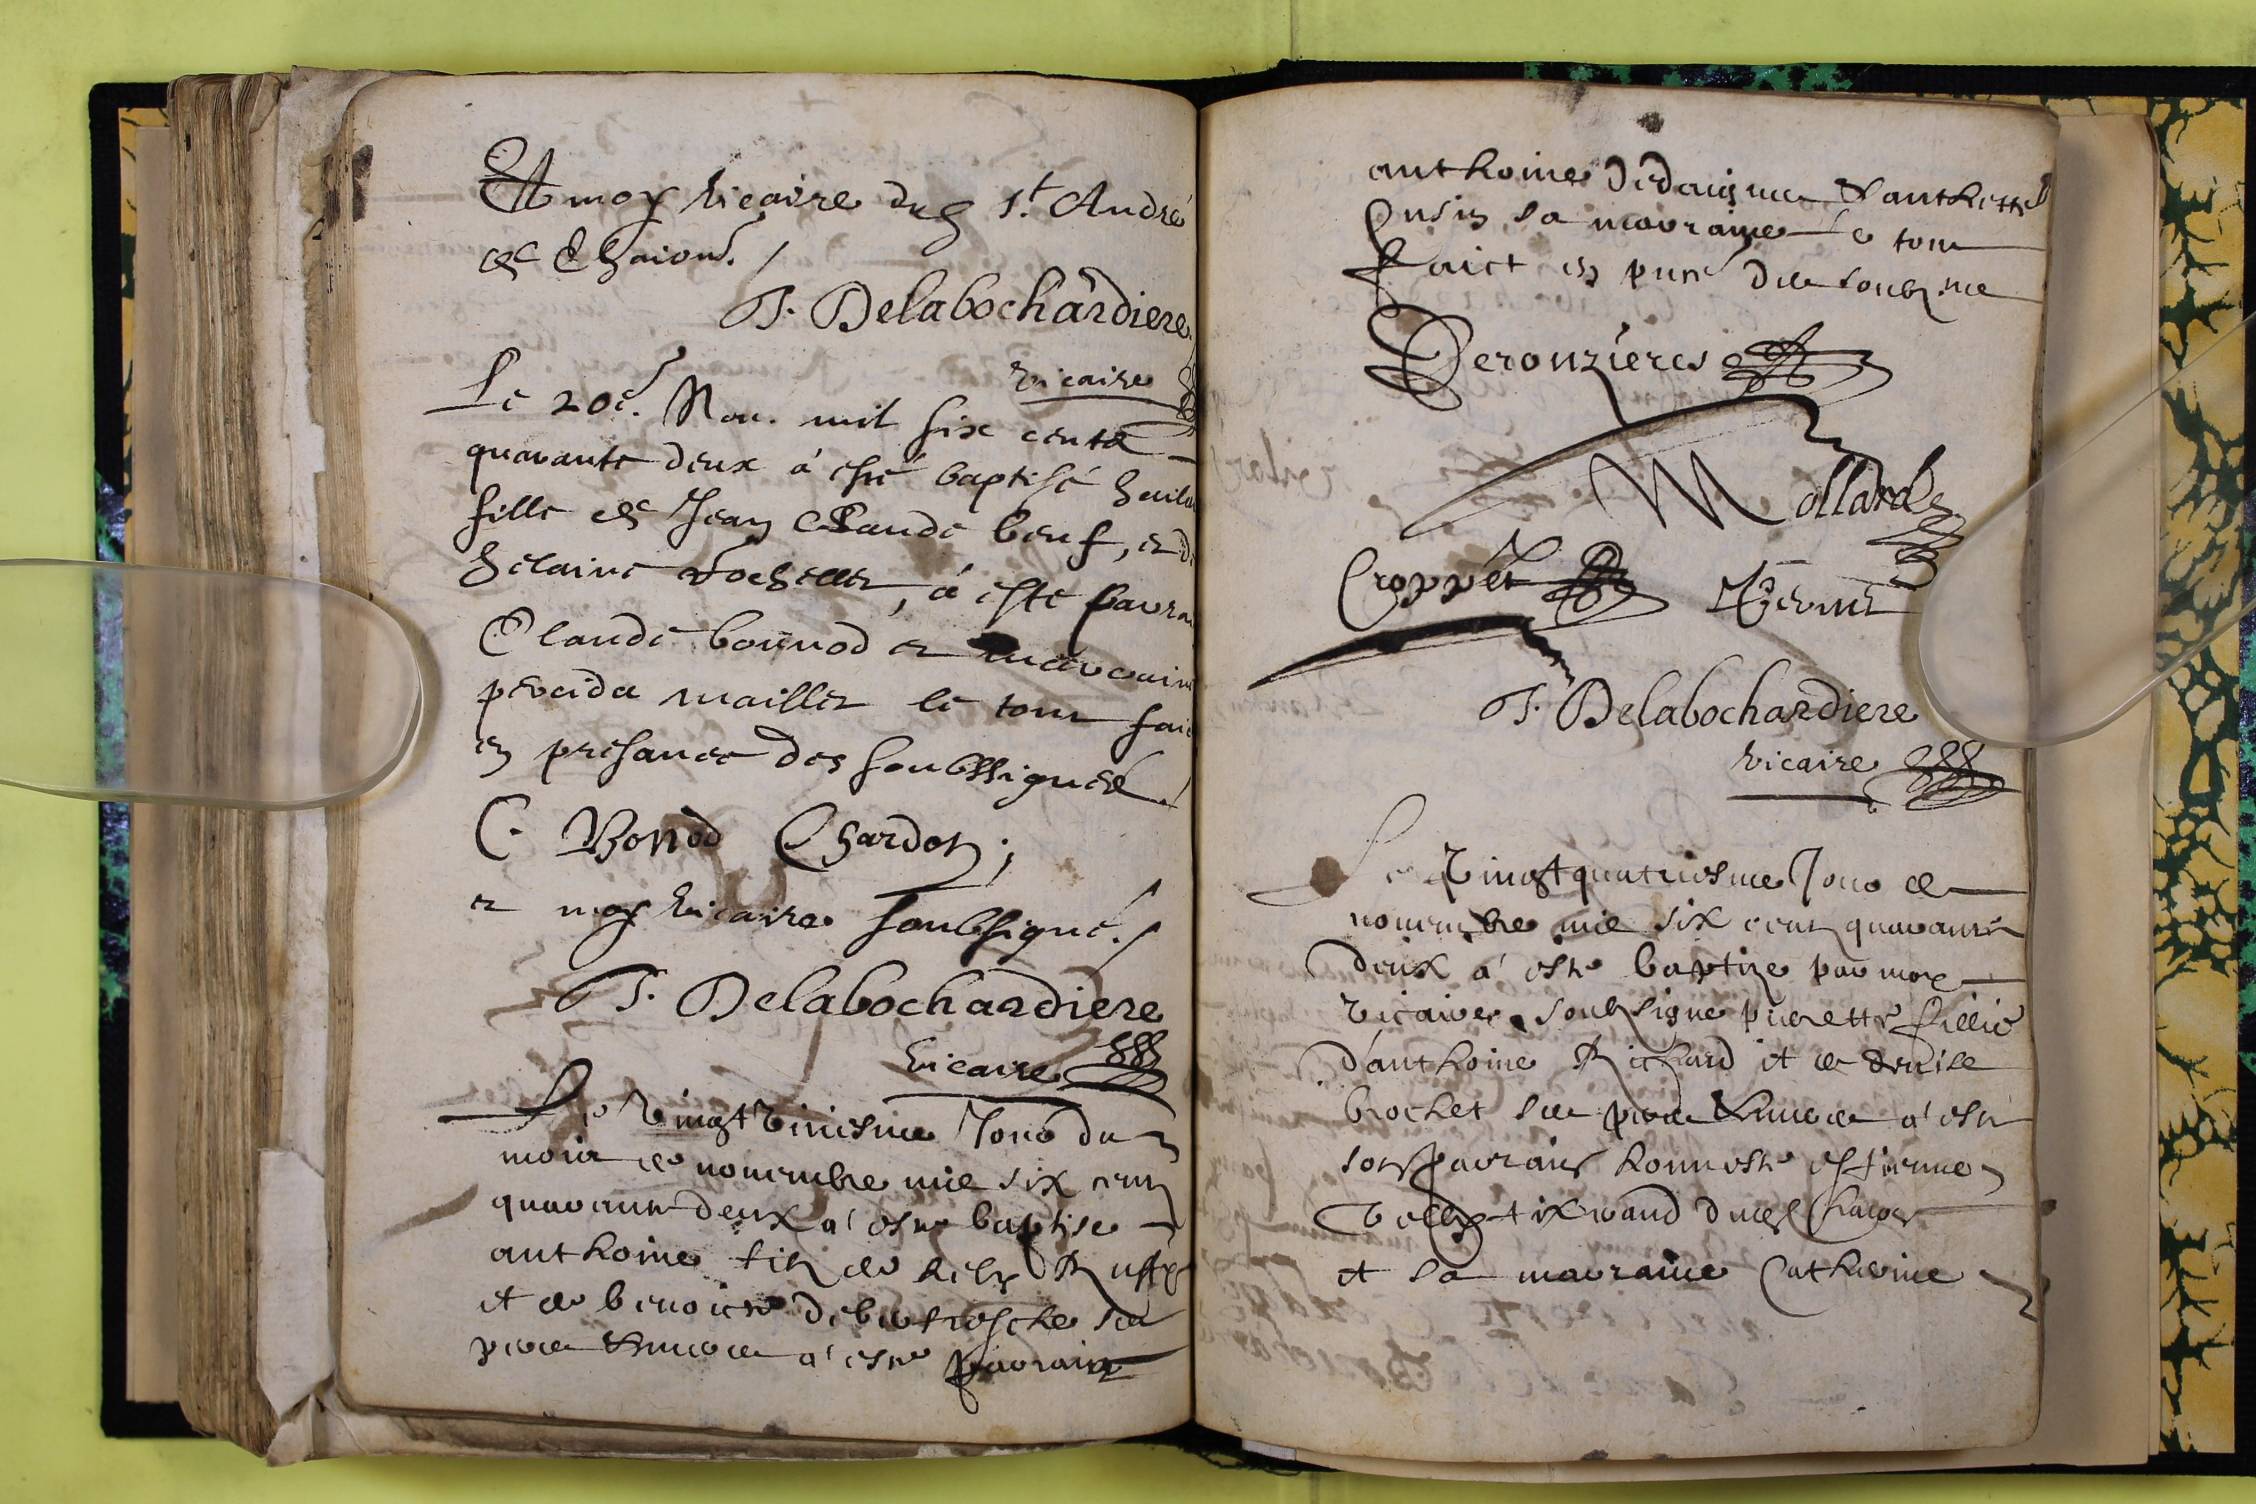 Et moy vicaire dud St. André
de Chaions. /
T. Delabochardiere
vicaire
Le 20e. Nou. mil six cents
quarante deux á esté baptisé
fille de Jean Claude beuf, et de
helaine Rochetter, á este parrai
Claude bonnod et marraine
maillet le tout faic
en presance des soubssignés. /
C. Bonod Chardon;
et moy vicaire soubsigné. /
T. Delabochardiere
vicaire
Le vingt jour du
mois de nouembre mil six cent
quarante deux a esté baptise
anthoine filz de
et de benoiste ses
pere & mere a esté parrain
anthoine & anthette
Cusin sa marraine le tout
faict en pnce des soubz.ne
Deronzieres
Mollard
Croppet
T. Delabochardiere
vicaire
Le vingtquatriesme Jour de
nouembre mil six cent quarante
deux a esté baptize par moy
vicaire soubsigne pierrette fillie
d'anthoine Richard et de denise
brochet ses pere & mere a esté
son parrain honneste estienne
tixerand
et sa marraine Catherine